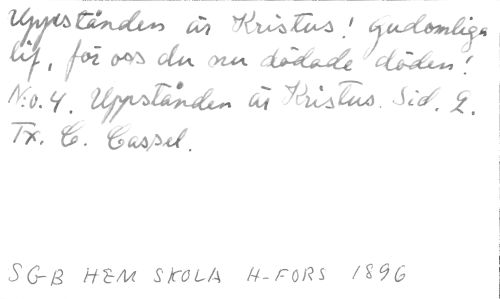 Uppstånden är Kristus! Gudomliga
lif, för oss du nu dödade döden!
N:o. 4. Uppstånden är Kristus. Sid. 2.
Tx. C. Cassel.
SGB HEM SKOLA H-FORS 1896